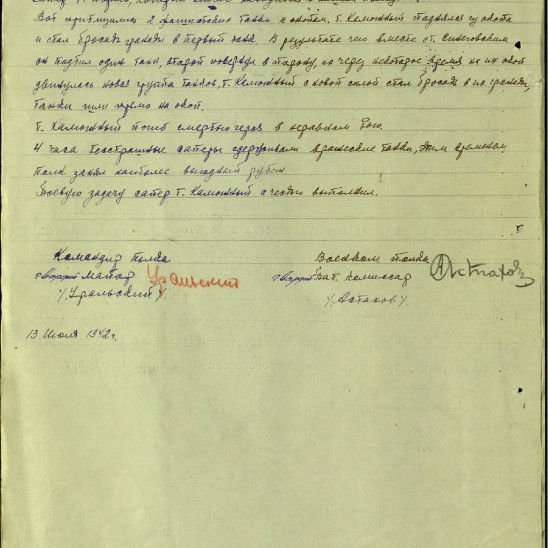 Вот приблизились 2 фашистских танка к окопам. т. Камюжный поднялся из окопа
и стал бросать гранаты в первый танк. В результате чего вместе с т. Синеговским
он подбил один танк, второй повернул в сторону, но через некоторое время на их окоп
двинулась новая группа танков, т. Камюжный с новой силой стал бросать в их гранаты,
танки шли прямо на окоп.
т. Камюжный погиб смертью героя в неравном бою.
4 часа бесстрашные саперы сдерживали вражеские танки, этим временем
полк занял наиболее выгодный рубеж
Боевую задачу сапер т. Камюжный с честью выполнил.
Командир полка Военком полка
гвардии майор Уральский гвардии бат. комиссар Астахов
/Уральский/ /Астахов/
13 июля 1942г.